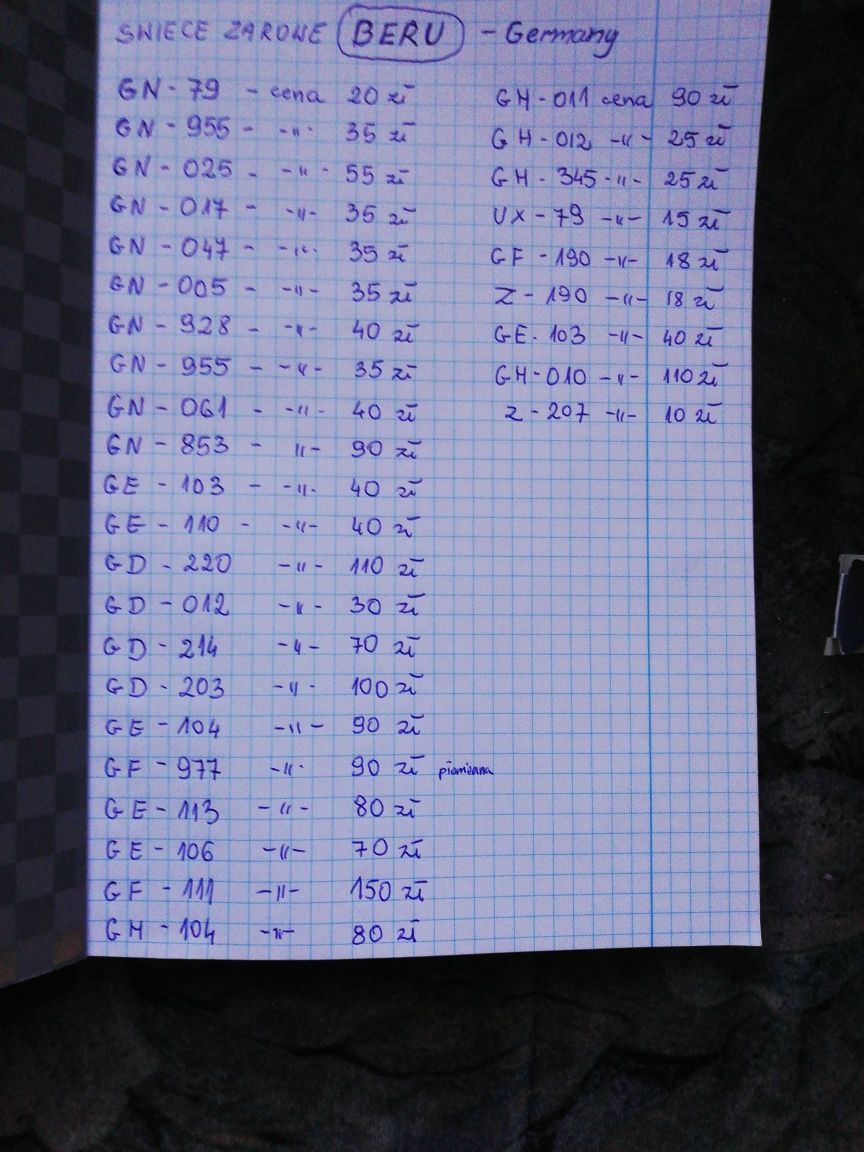 SWIECE ZAROWE BERU - Germany
GN - 79 - cena 20 zł
GN - 955 - -"- 35 zł
GN - 025 - -"- 55 zł
GN - 017 - -"- 35 zł
GN - 047 - -"- 35 zł
GN - 005 - -"- 35 zł
GN - 928 - -"- 40 zł
GN - 955 - -"- 35 zł
GN - 061 - -"- 40 zł
GN - 853 - "- 90 zł
GE - 103 - -"- 40 zł
GE - 110 - -"- 40 zł
GD - 220 -"- 110 zł
GD - 012 -"- 30 zł
GD - 214 -"- 70 zł
GD - 203 -"- 100 zł
GE - 104 -"- 90 zł
GF - 977 -"- 90 zł
GE - 113 -"- 80 zł
GE - 106 -"- 70 zł
GF - 111 -"- 150 zł
GH - 104 -"- 80 zł
GH - 011 cena 90 zł
GH - 012 -"- 25 zł
GH - 345 -"- 25 zł
UX - 79 -"- 15 zł
GF - 190 -"- 18 zł
Z - 190 -"- 18 zł
GE - 103 -"- 40 zł
GH - 010 -"- 110 zł
Z - 207 -"- 10 zł